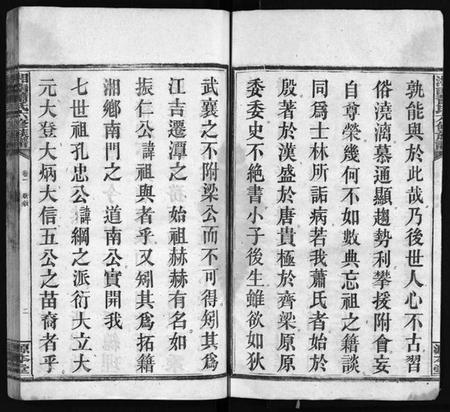 孰能與於此哉乃後世人心不古習
俗澆漓慕通顯趨勢利攀援附會妄
自尊榮幾何不如數典忘祖之籍談
同爲士林所詬病若我蕭氏者始於
殷著於漢盛於唐貴極於齊梁原原
委委史不絕書小子後生雖欲如狄
武襄之不附梁公而不可得矧其爲
江吉遷潭之 始祖赫赫有名如
振仁公諱祖與者乎又矧其爲拓籍
湘鄉南門之 道南公實開我
七世祖孔忠公諱綱之派衍大立大
元大登大炳大信五公之苗裔者乎
卷一
二